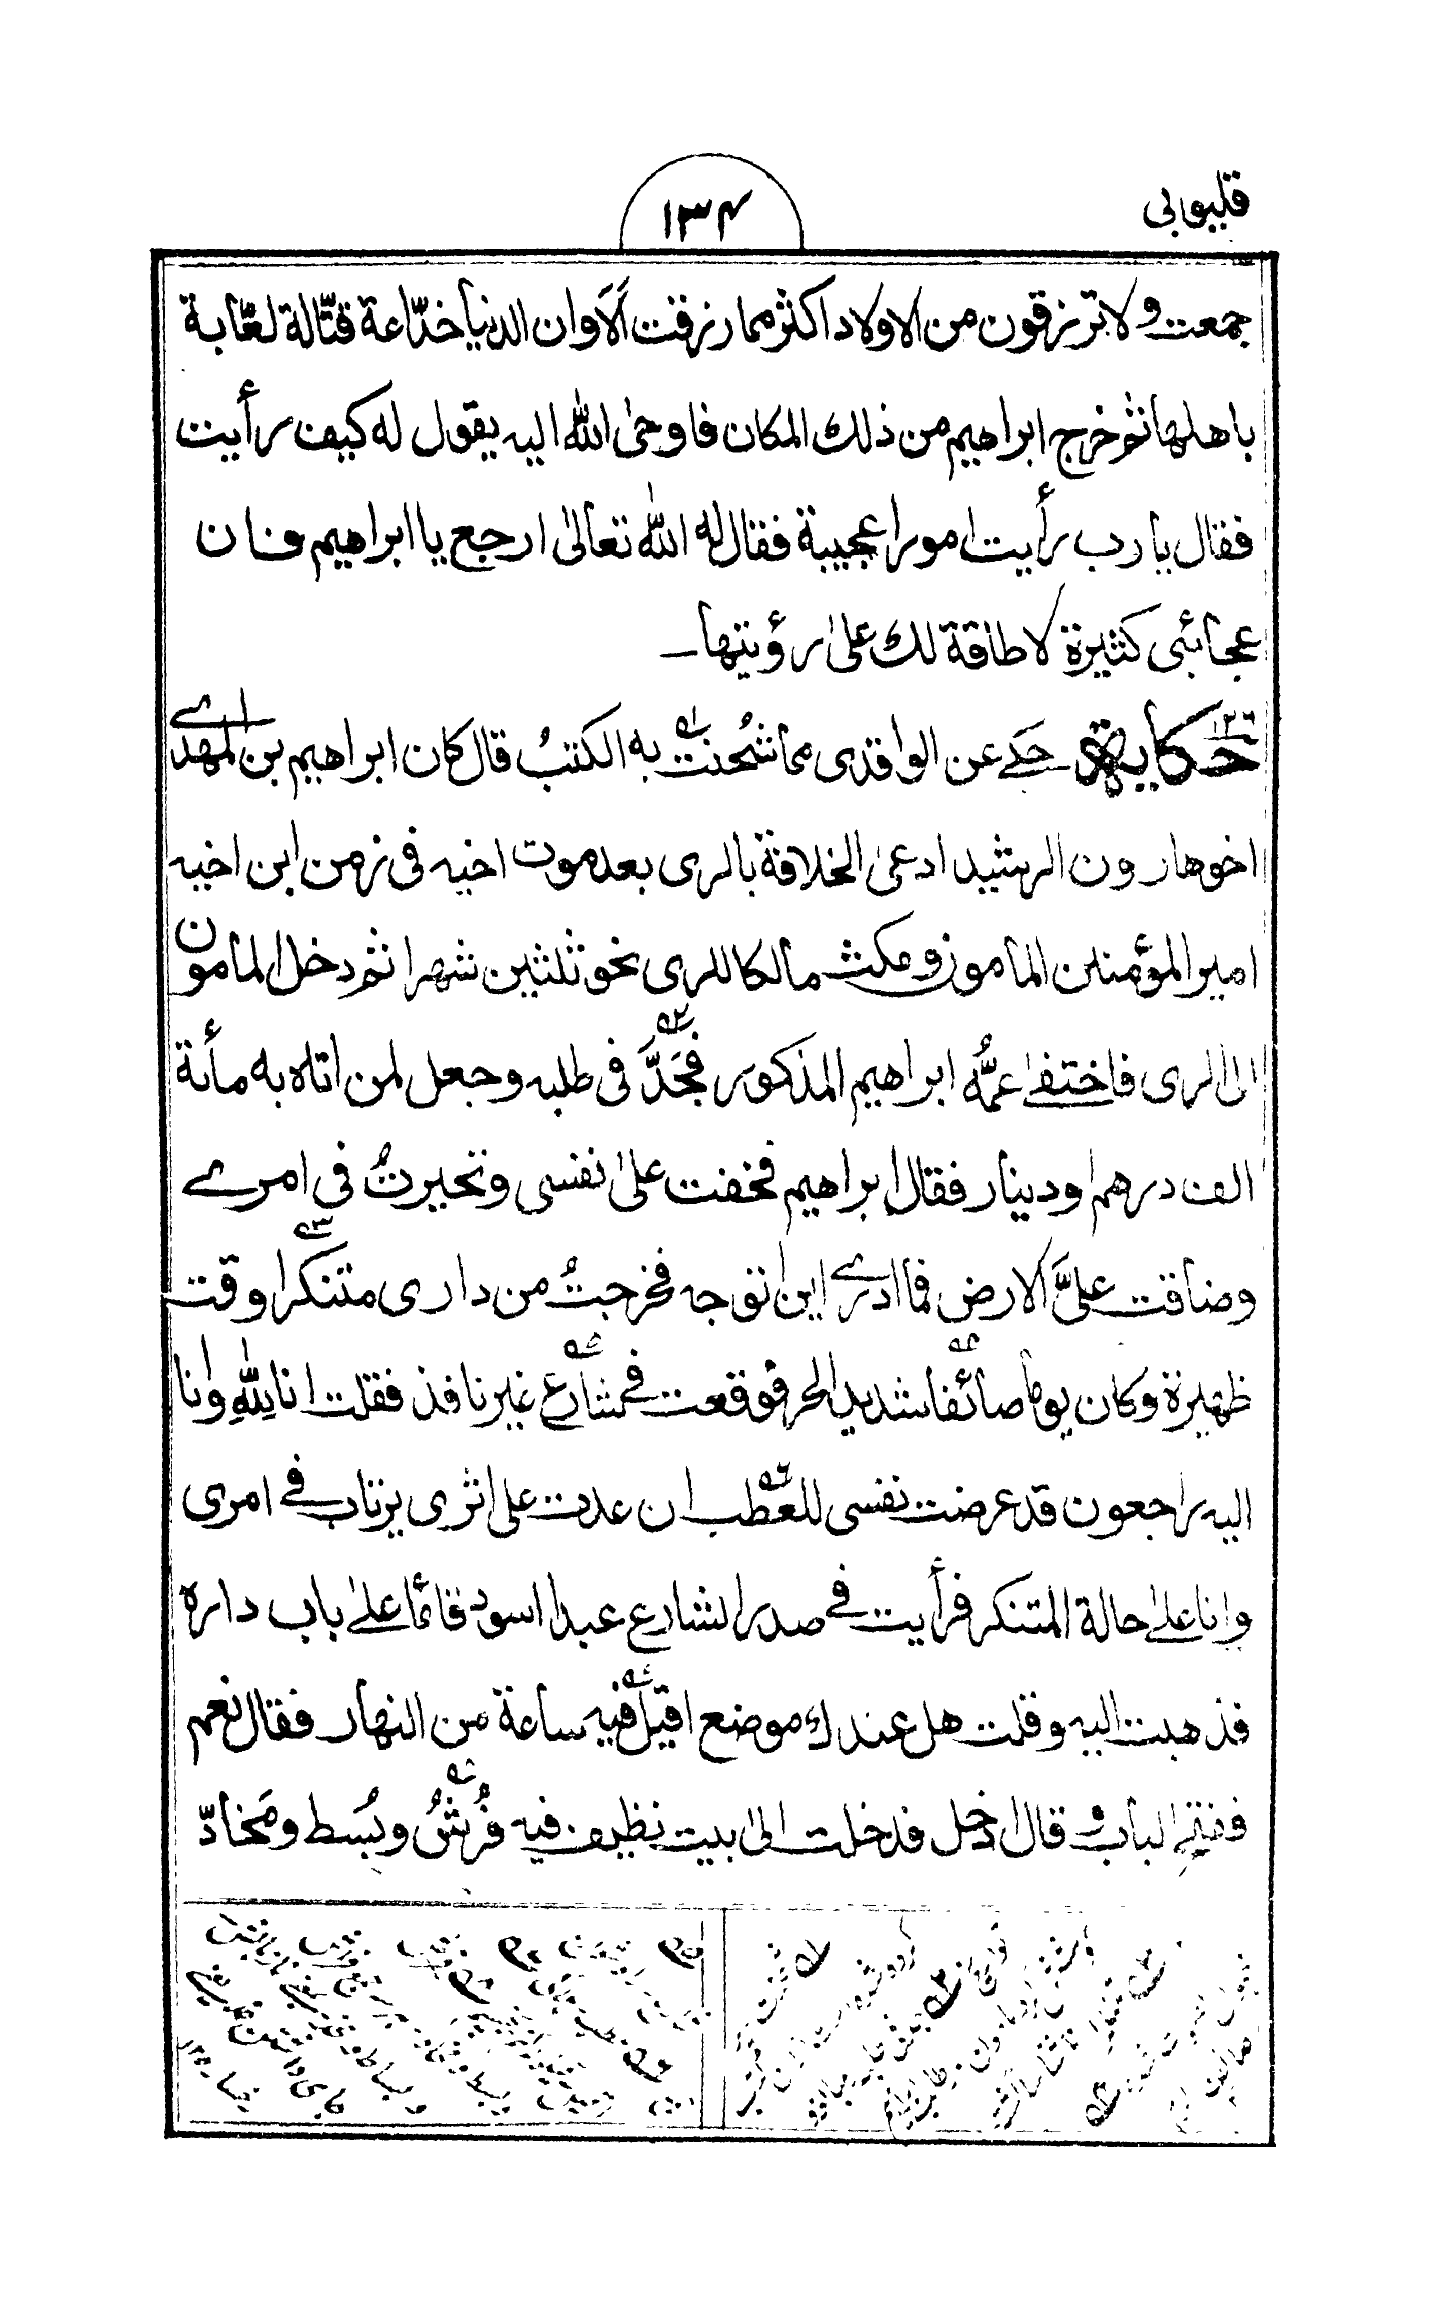 قليوبي
١٣٤
جمعت ولا ترزقون من الاولاد اكثر مما رزقت ألا وان الدنيا خدّاعة قتّالة لعّابة
باهلها ثم خرج ابراهيم من ذلك المكان فاوحىٰ الله اليه يقول له كيف رأيت
فقال يا رب رأيت امورا عجيبة فقال له الله تعالىٰ ارجع يا ابراهيم فان
عجائبى كثيرة لا طاقة لك علىٰ رؤيتها۔
حكاية ١٢٦ حكے عن الواقدى مما شُحنت به الكتبُ قال كان ابراهيم بن المهدے
اخو هارون الرشيد ادعىٰ الخلافة بالرى بعد موت اخيه فى زمن ابن اخيه
امير المؤمنين المأمون ومكث مالكا للرى نحو ثلثين شهرا ثم دخل المأمون
الىٰ الرى فاختفىٰ عمُّه ابراهيم المذكور فجَدَّ فى طلبه وجعل لمن اتاه به مأئة
الف درهم او دينار فقال ابراهيم فخفت علىٰ نفسى وتحيرتُ فى امرے
وضاقت علىَّ الارض فما ادرے اين اتوجه فخرجتُ من دارى متنكرا وقت
ظهيرة وكان يوما صائفا شديد الحر فوقعت فے شارع غير نافذ فقلت انا لِلّٰهِ وانا
اليه راجعون قد عرضت نفسى للعطب ان عدت على اثرى يرتاب فے امرى
وانا علىٰ حالة المتنكر فرأيت فے صدر الشارع عبدا اسود قائما علىٰ باب داره
فذهبت اليه وقلت هل عندك موضع اقيل فيه ساعة من النهار فقال نعم
ففتح الباب و قال ادخل فدخلت الىٰ بيت نظيف فيه فُرُشٌ وبُسط ومَخادّ